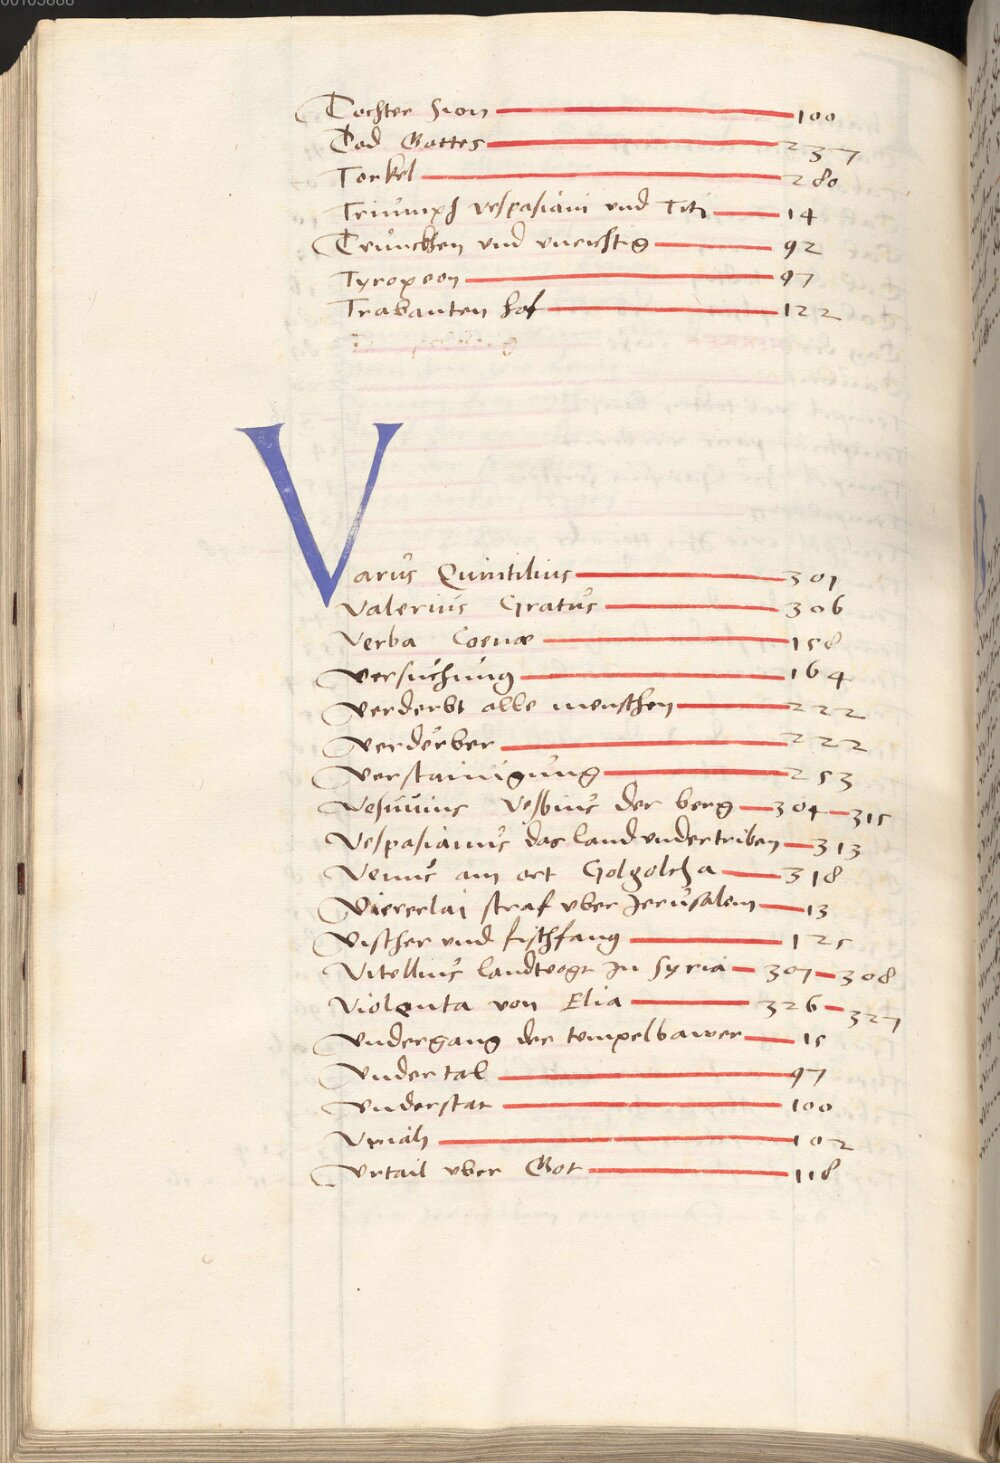 Tochter Sion 100
Tod Gottes 237
Torkel 280
Triumph Vespasiani und Titi 14
Trunckhen und 92
Tyropeon 97
Trabanten hof 122
Varus Quintilius 301
Valerius Gratus 306
Verba Coenæ 158
Versuchung 164
Verderbt alle menschen 222
Verderber 222
Verstainigung 253
Vesuvius Vesbius der berg 304 315
Vespasianus das land undertriben 313
Venus am ort Golgoltha 318
Viererlai straf uber Jerusalem 13
Vischer und fischfang 125
Vitellius landtvogt in Syria 307 308
Violenta von Elia 326 327
Undergang der tempelbawer 15
Undertal 97
Understat 100
Uriah 102
Urtail uber Got 118